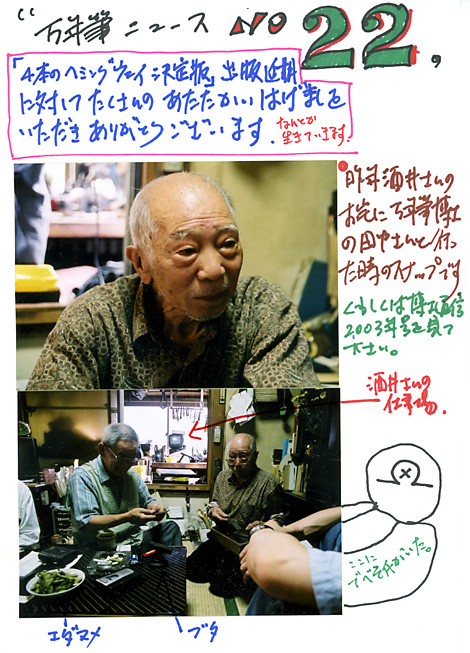 "万年筆ニュース NO 22,
「4本のヘミングウェイ決定版」出版延期
に対してたくさんのあたたかいはげましを
いただきありがとうございます.
なんとか
生きています!
昨年酒井さんの
お宅に万年筆博士
の田中さんと行っ
た時のスナップです
くわしくは博士通信
2003年号を見て
下さい。
酒井さんの
仕事場.
ここに
でべそ氏がいた。
エダマメ
ブタ